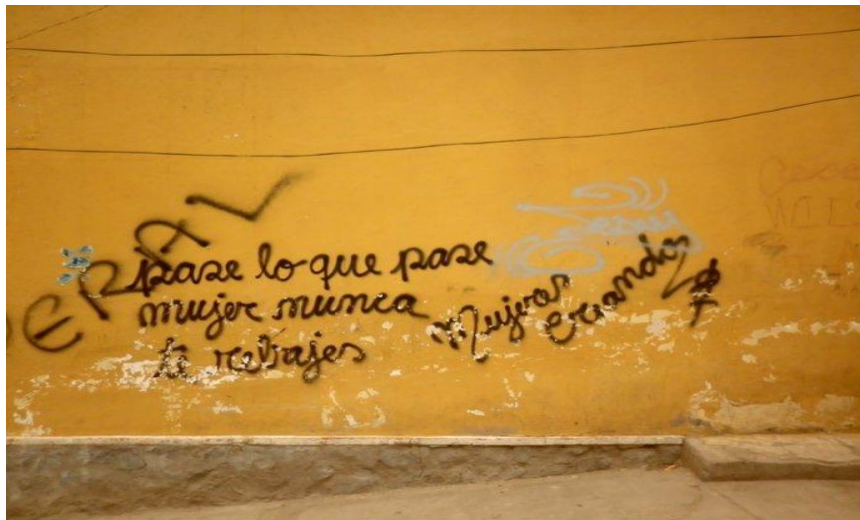 pase lo que pase
mujer nunca
te rebajes
Mujeres
creando
ERAL